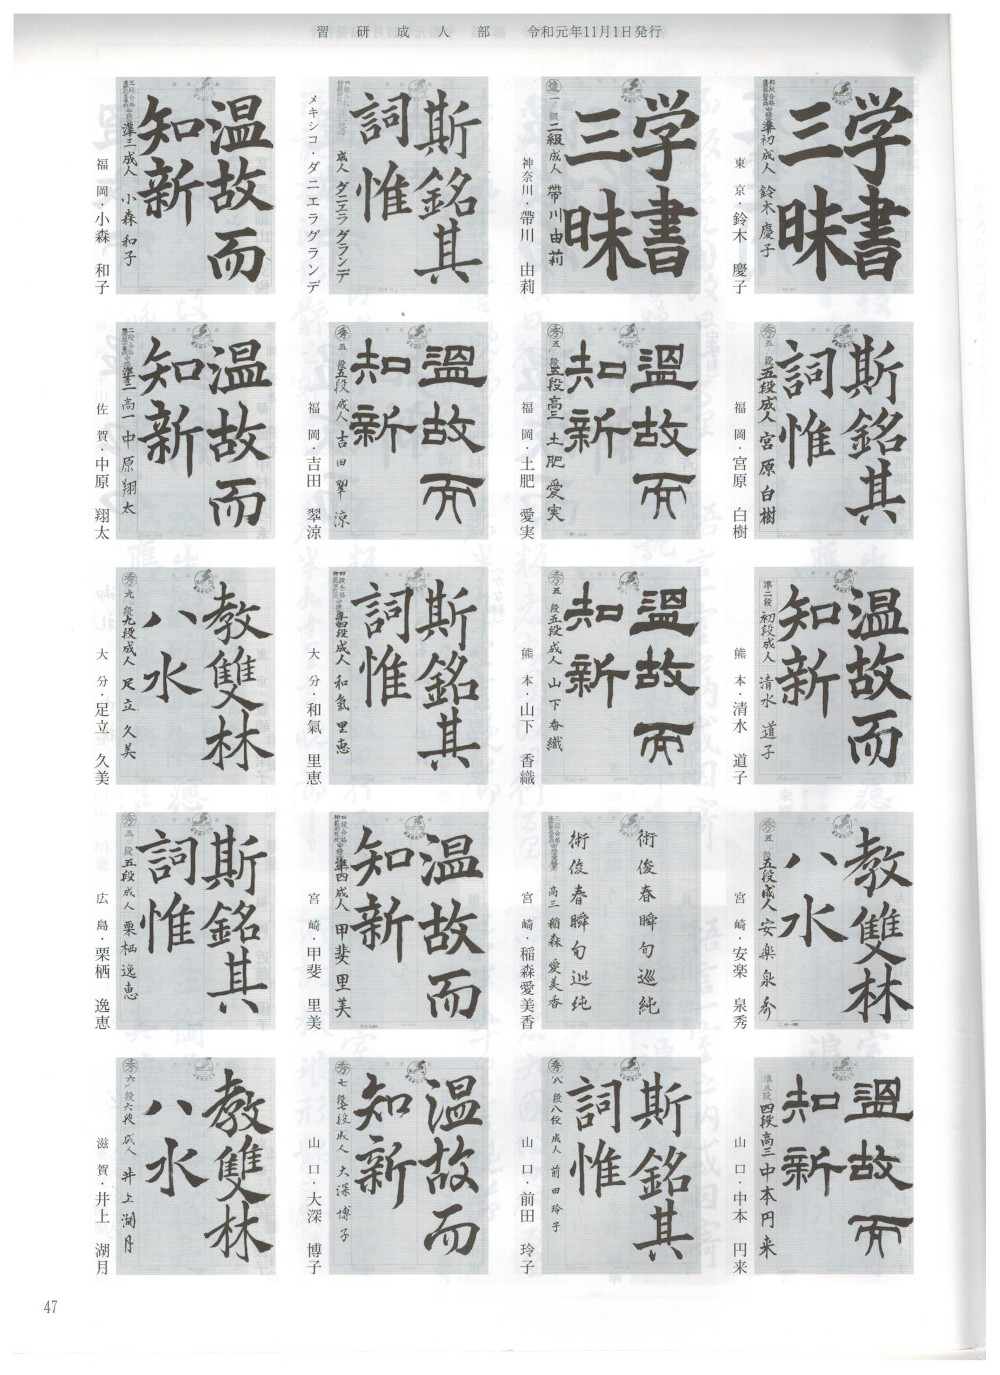 習研成人部 令和元年11月1日発行
学書
三昧
準初成人 鈴木慶子
東京・鈴木 慶子
学書
三昧
二級成人 帶川由莉
神奈川・帶川 由莉
斯銘其
詞惟
成人 ダニエラグランデ
メキシコ・ダニエラグランデ
温故而
知新
準三成人 小森和子
福岡・小森 和子
斯銘其
詞惟
秀 五段
五段成人 宮原白樹
福岡・宮原 白樹
温故而
知新
秀 五段
五段高三 土肥愛実
福岡・土肥 愛実
温故而
知新
秀 五段
五段成人 吉田翠涼
福岡・吉田 翠涼
温故而
知新
準二高一 中原翔太
佐賀・中原 翔太
温故而
知新
準二段
初段成人 清水道子
熊本・清水 道子
温故而
知新
秀 五段
五段成人 山下香織
熊本・山下 香織
斯銘其
詞惟
準四段成人 和氣里恵
大分・和氣 里恵
教雙林
八水
秀 九段
九段成人 足立久美
大分・足立 久美
教雙林
八水
秀 五段
五段成人 安楽泉秀
宮崎・安楽 泉秀
術俊春瞬旬巡純
術俊春瞬旬巡純
高三 稲森愛美香
宮崎・稲森愛美香
温故而
知新
準四成人 甲斐里美
宮崎・甲斐 里美
斯銘其
詞惟
秀 五段
五段成人 栗栖逸恵
広島・栗栖 逸恵
温故而
知新
準五段
四段高三 中本円来
山口・中本 円来
斯銘其
詞惟
秀 八段
八段成人 前田玲子
山口・前田 玲子
温故而
知新
秀 七段
七段成人 大深博子
山口・大深 博子
教雙林
八水
秀 六段
六段成人 井上湖月
滋賀・井上 湖月
47